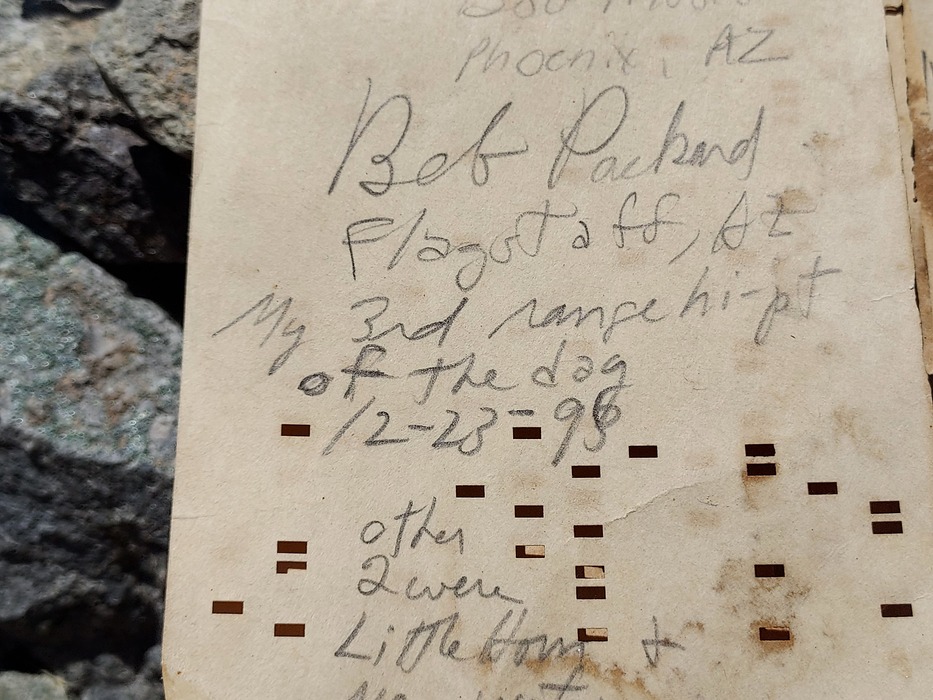 Phoenix, AZ
Bob Packard
Flagstaff, AZ
My 3rd range hi-pt
of the day
12-23-98
other
2 were
Little Horn +